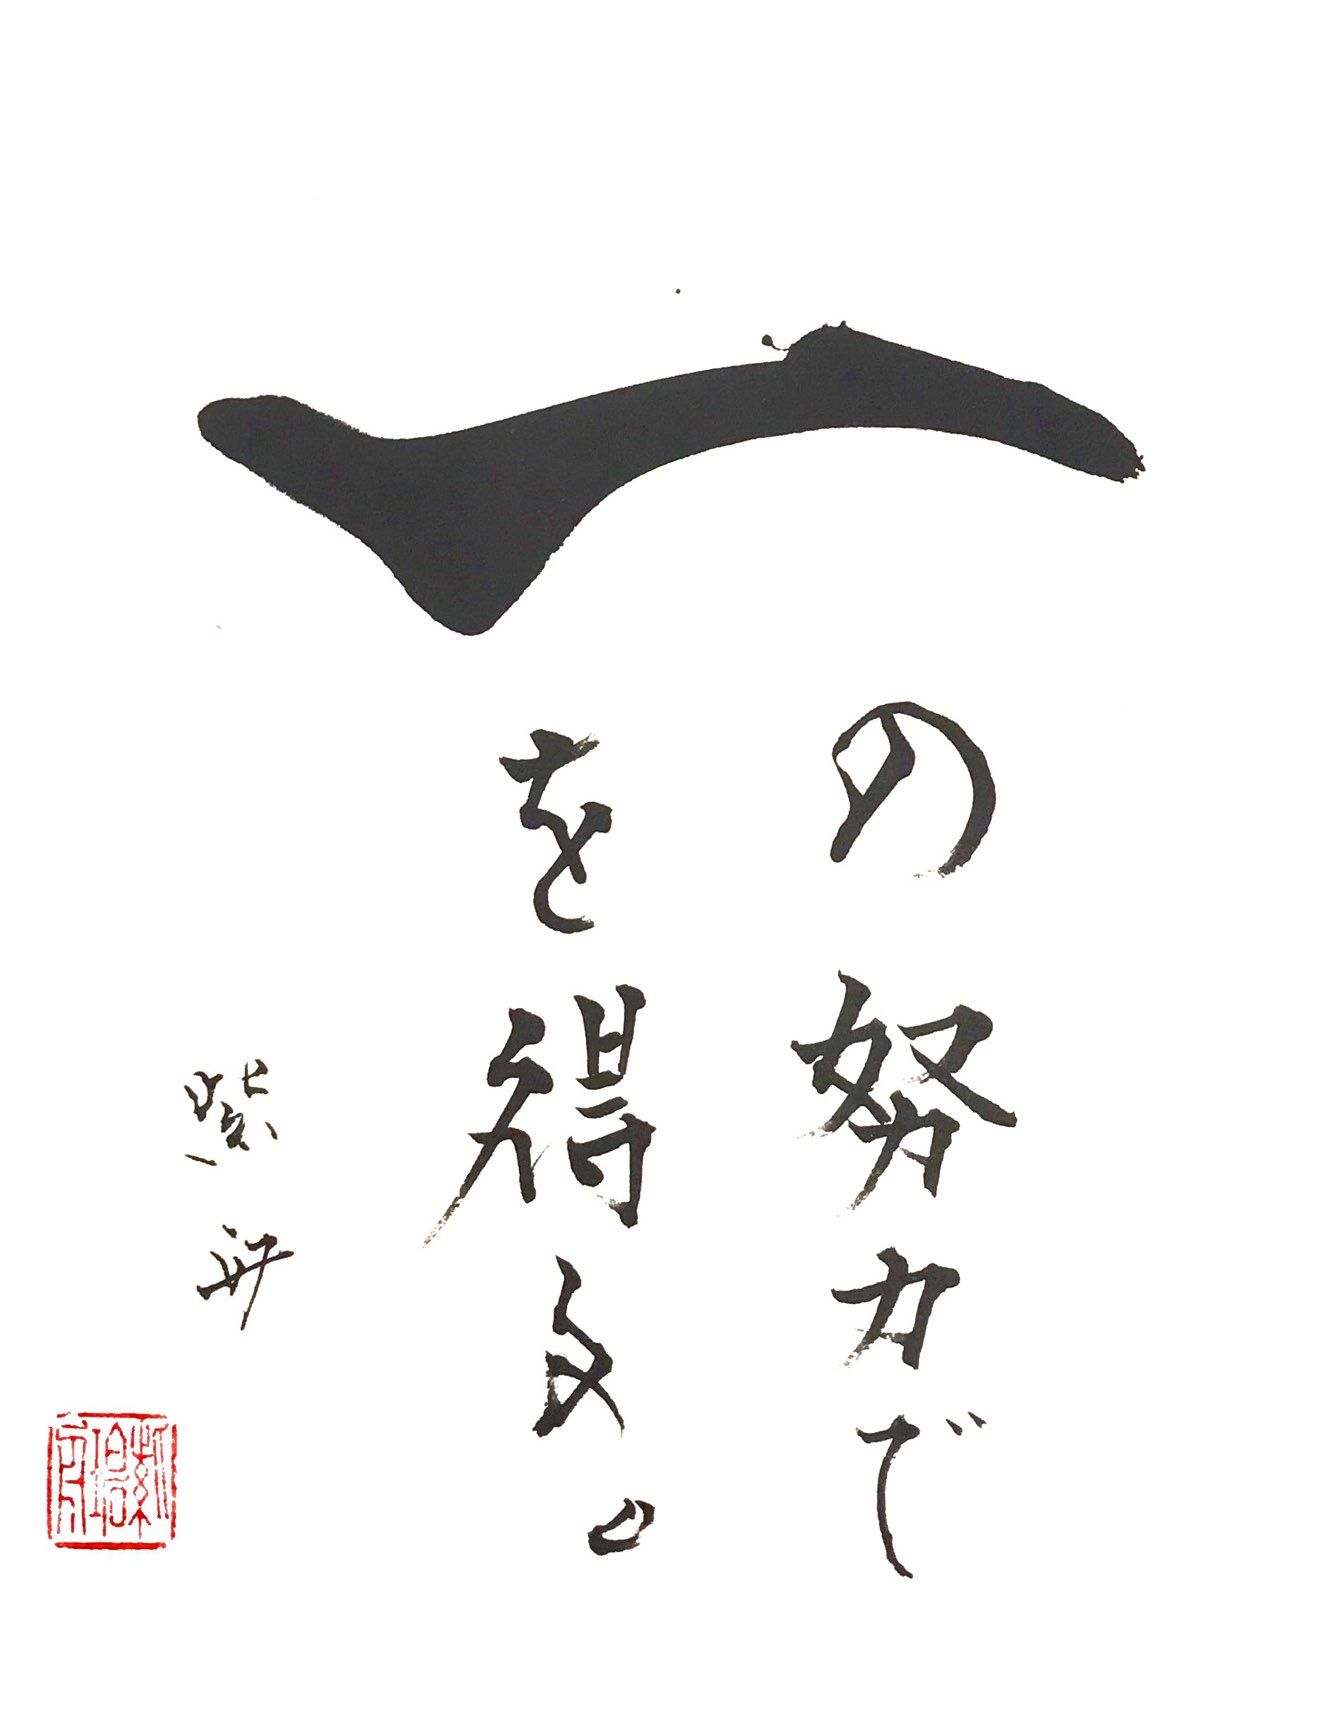 一
の努力で
を得る。